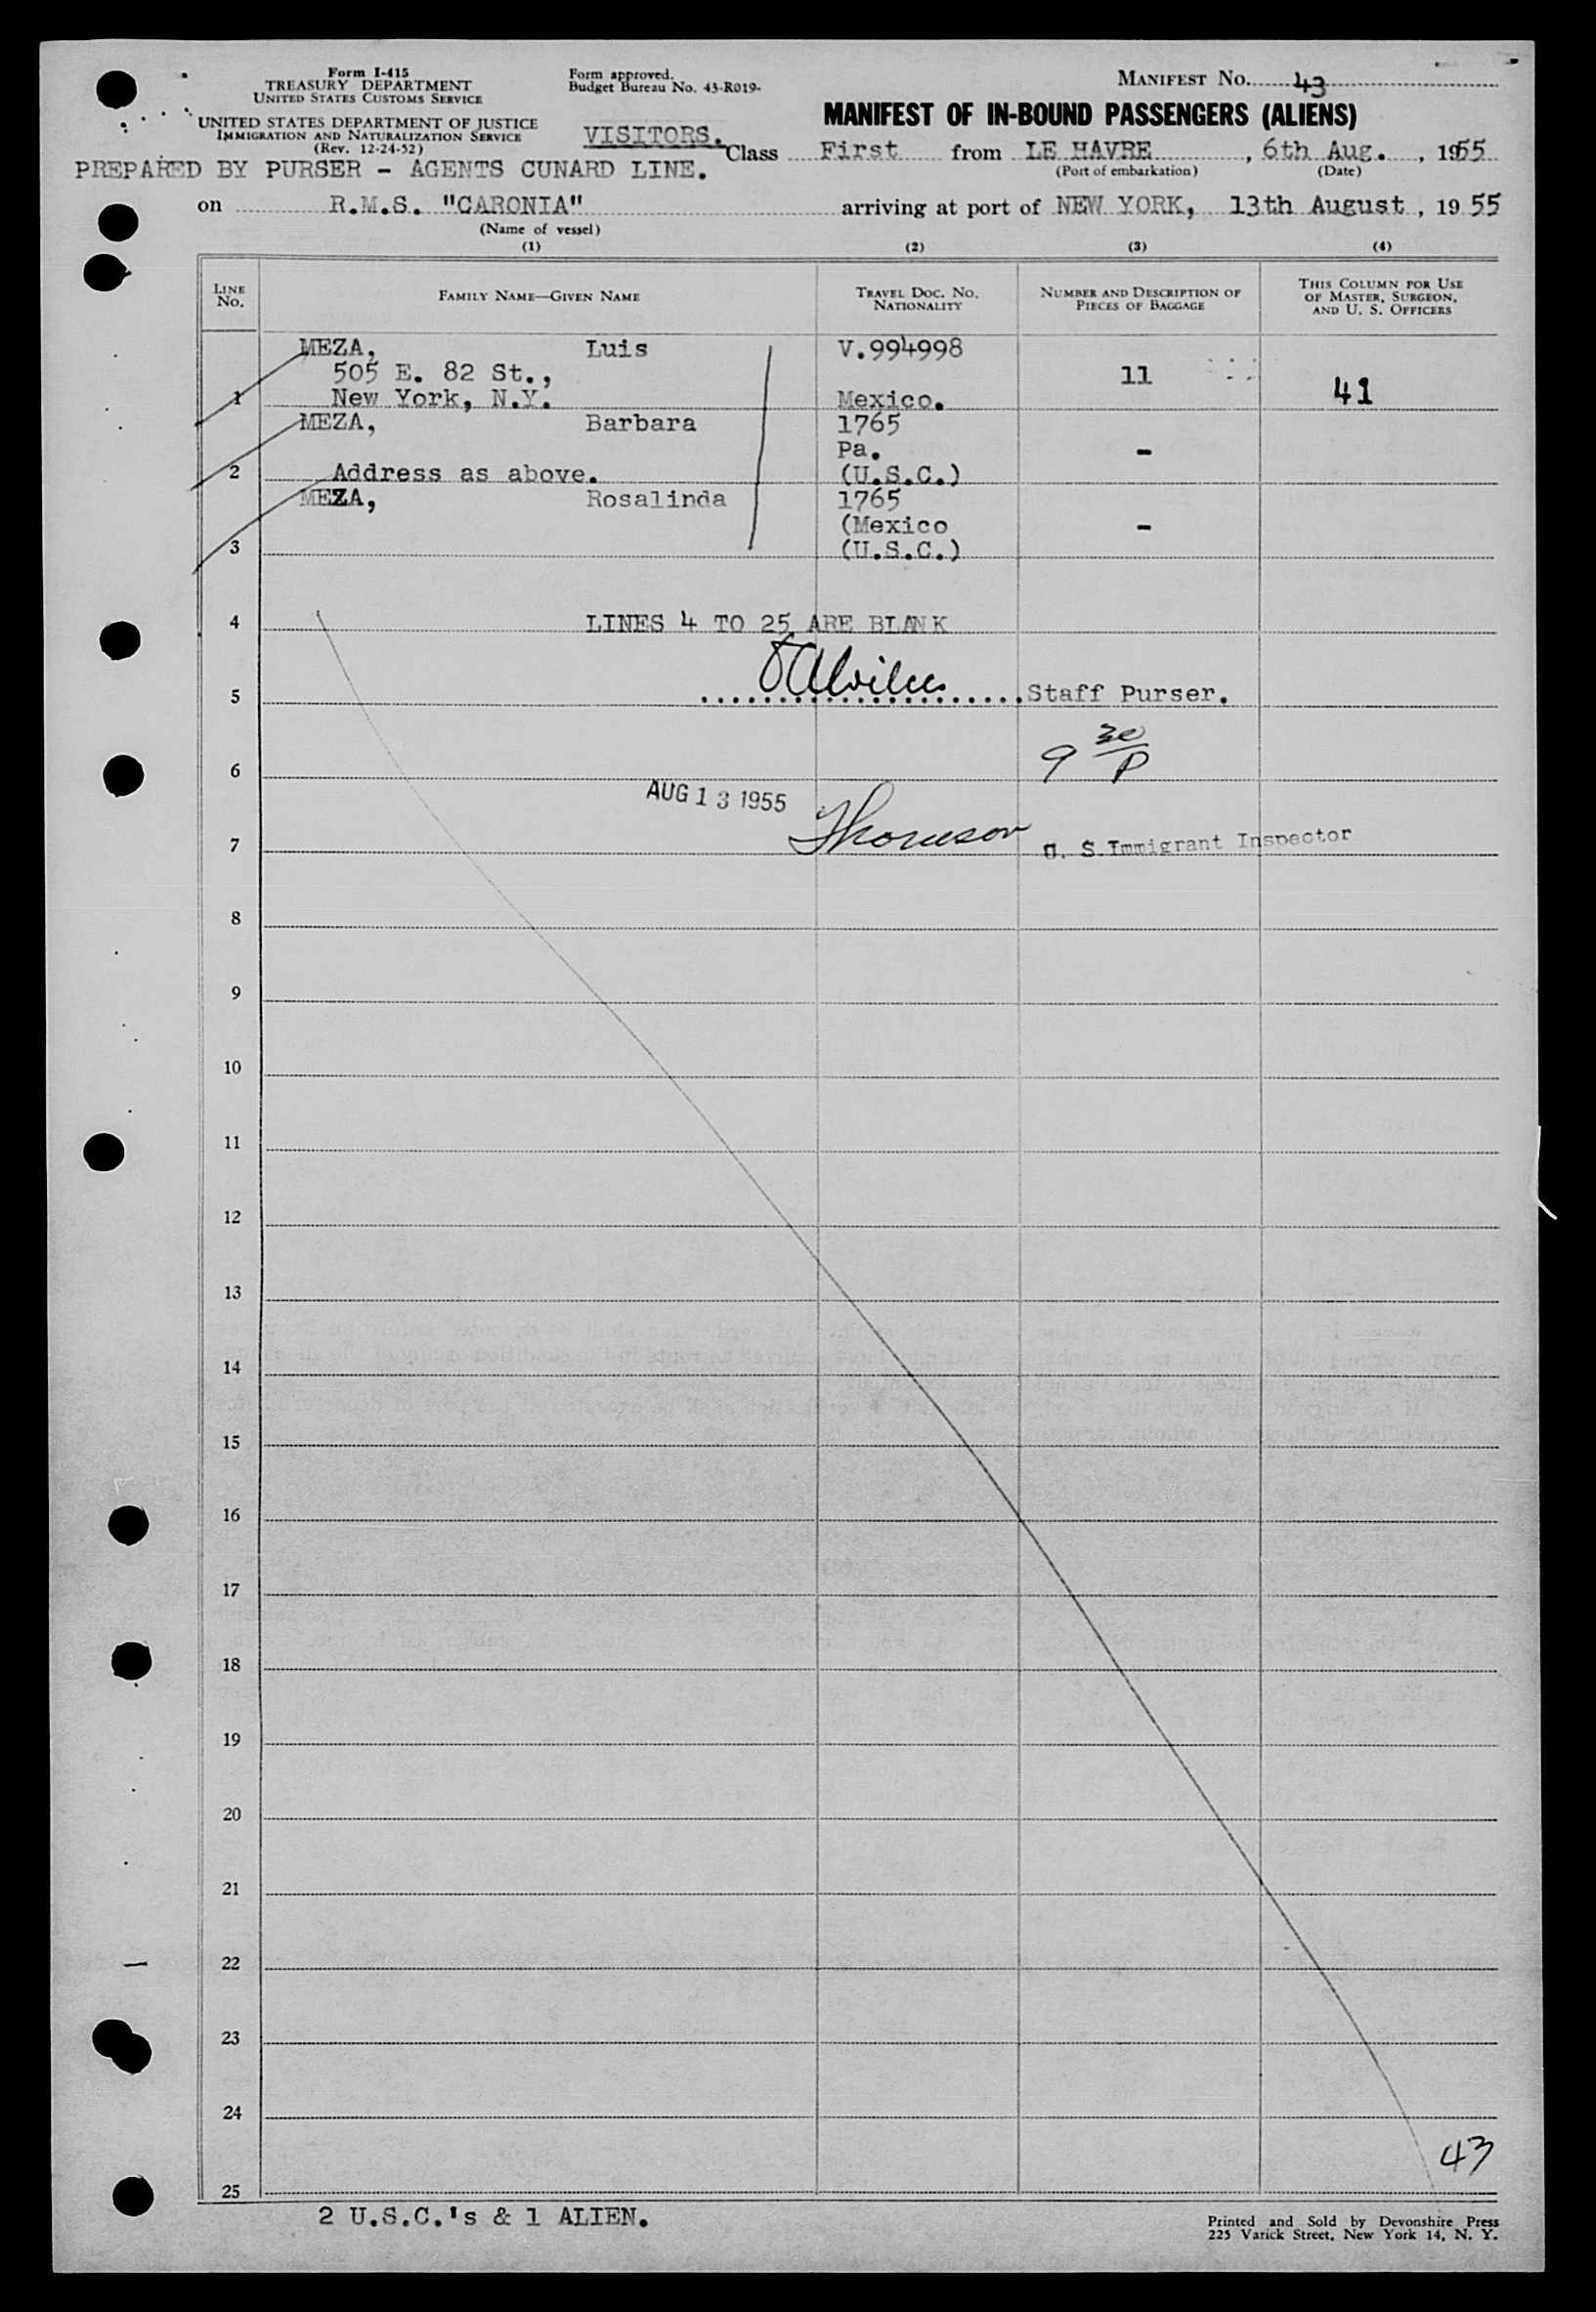 Form I-415
TREASURY DEPARTMENT
UNITED STATES CUSTOMS SERVICE
UNITED STATES DEPARTMENT OF JUSTICE
IMMIGRATION AND NATURALIZATION SERVICE
(Rev. 12-24-52)
Form approved.
Budget Bureau No. 43-R019-
MANIFEST No. 43
MANIFEST OF IN-BOUND PASSENGERS (ALIENS)
VISITORS.
Class First from LE HAVRE, 6th Aug., 1955
(Port of embarkation) (Date)
PREPARED BY PURSER - AGENTS CUNARD LINE.
on R.M.S. "CARONIA" arriving at port of NEW YORK, 13th August, 1955
(Name of vessel)
(1) (2) (3) (4)
LINE No. FAMILY NAME—GIVEN NAME TRAVEL DOC. No. NATIONALITY NUMBER AND DESCRIPTION OF PIECES OF BAGGAGE THIS COLUMN FOR USE OF MASTER, SURGEON, AND U. S. OFFICERS
MEZA, Luis V.994998
505 E. 82 St., 11 41
1 New York, N.Y. Mexico.
MEZA, Barbara 1765
Pa. -
2 Address as above. (U.S.C.)
MEZA, Rosalinda 1765
(Mexico -
3 (U.S.C.)
4 LINES 4 TO 25 ARE BLANK
5 Staff Purser.
9 30/P
6
AUG 13 1955
7 Thomson U. S. Immigrant Inspector
8
9
10
11
12
13
14
15
16
17
18
19
20
21
22
23
24
43
25
2 U.S.C.'s & 1 ALIEN.
Printed and Sold by Devonshire Press
225 Varick Street, New York 14, N. Y.